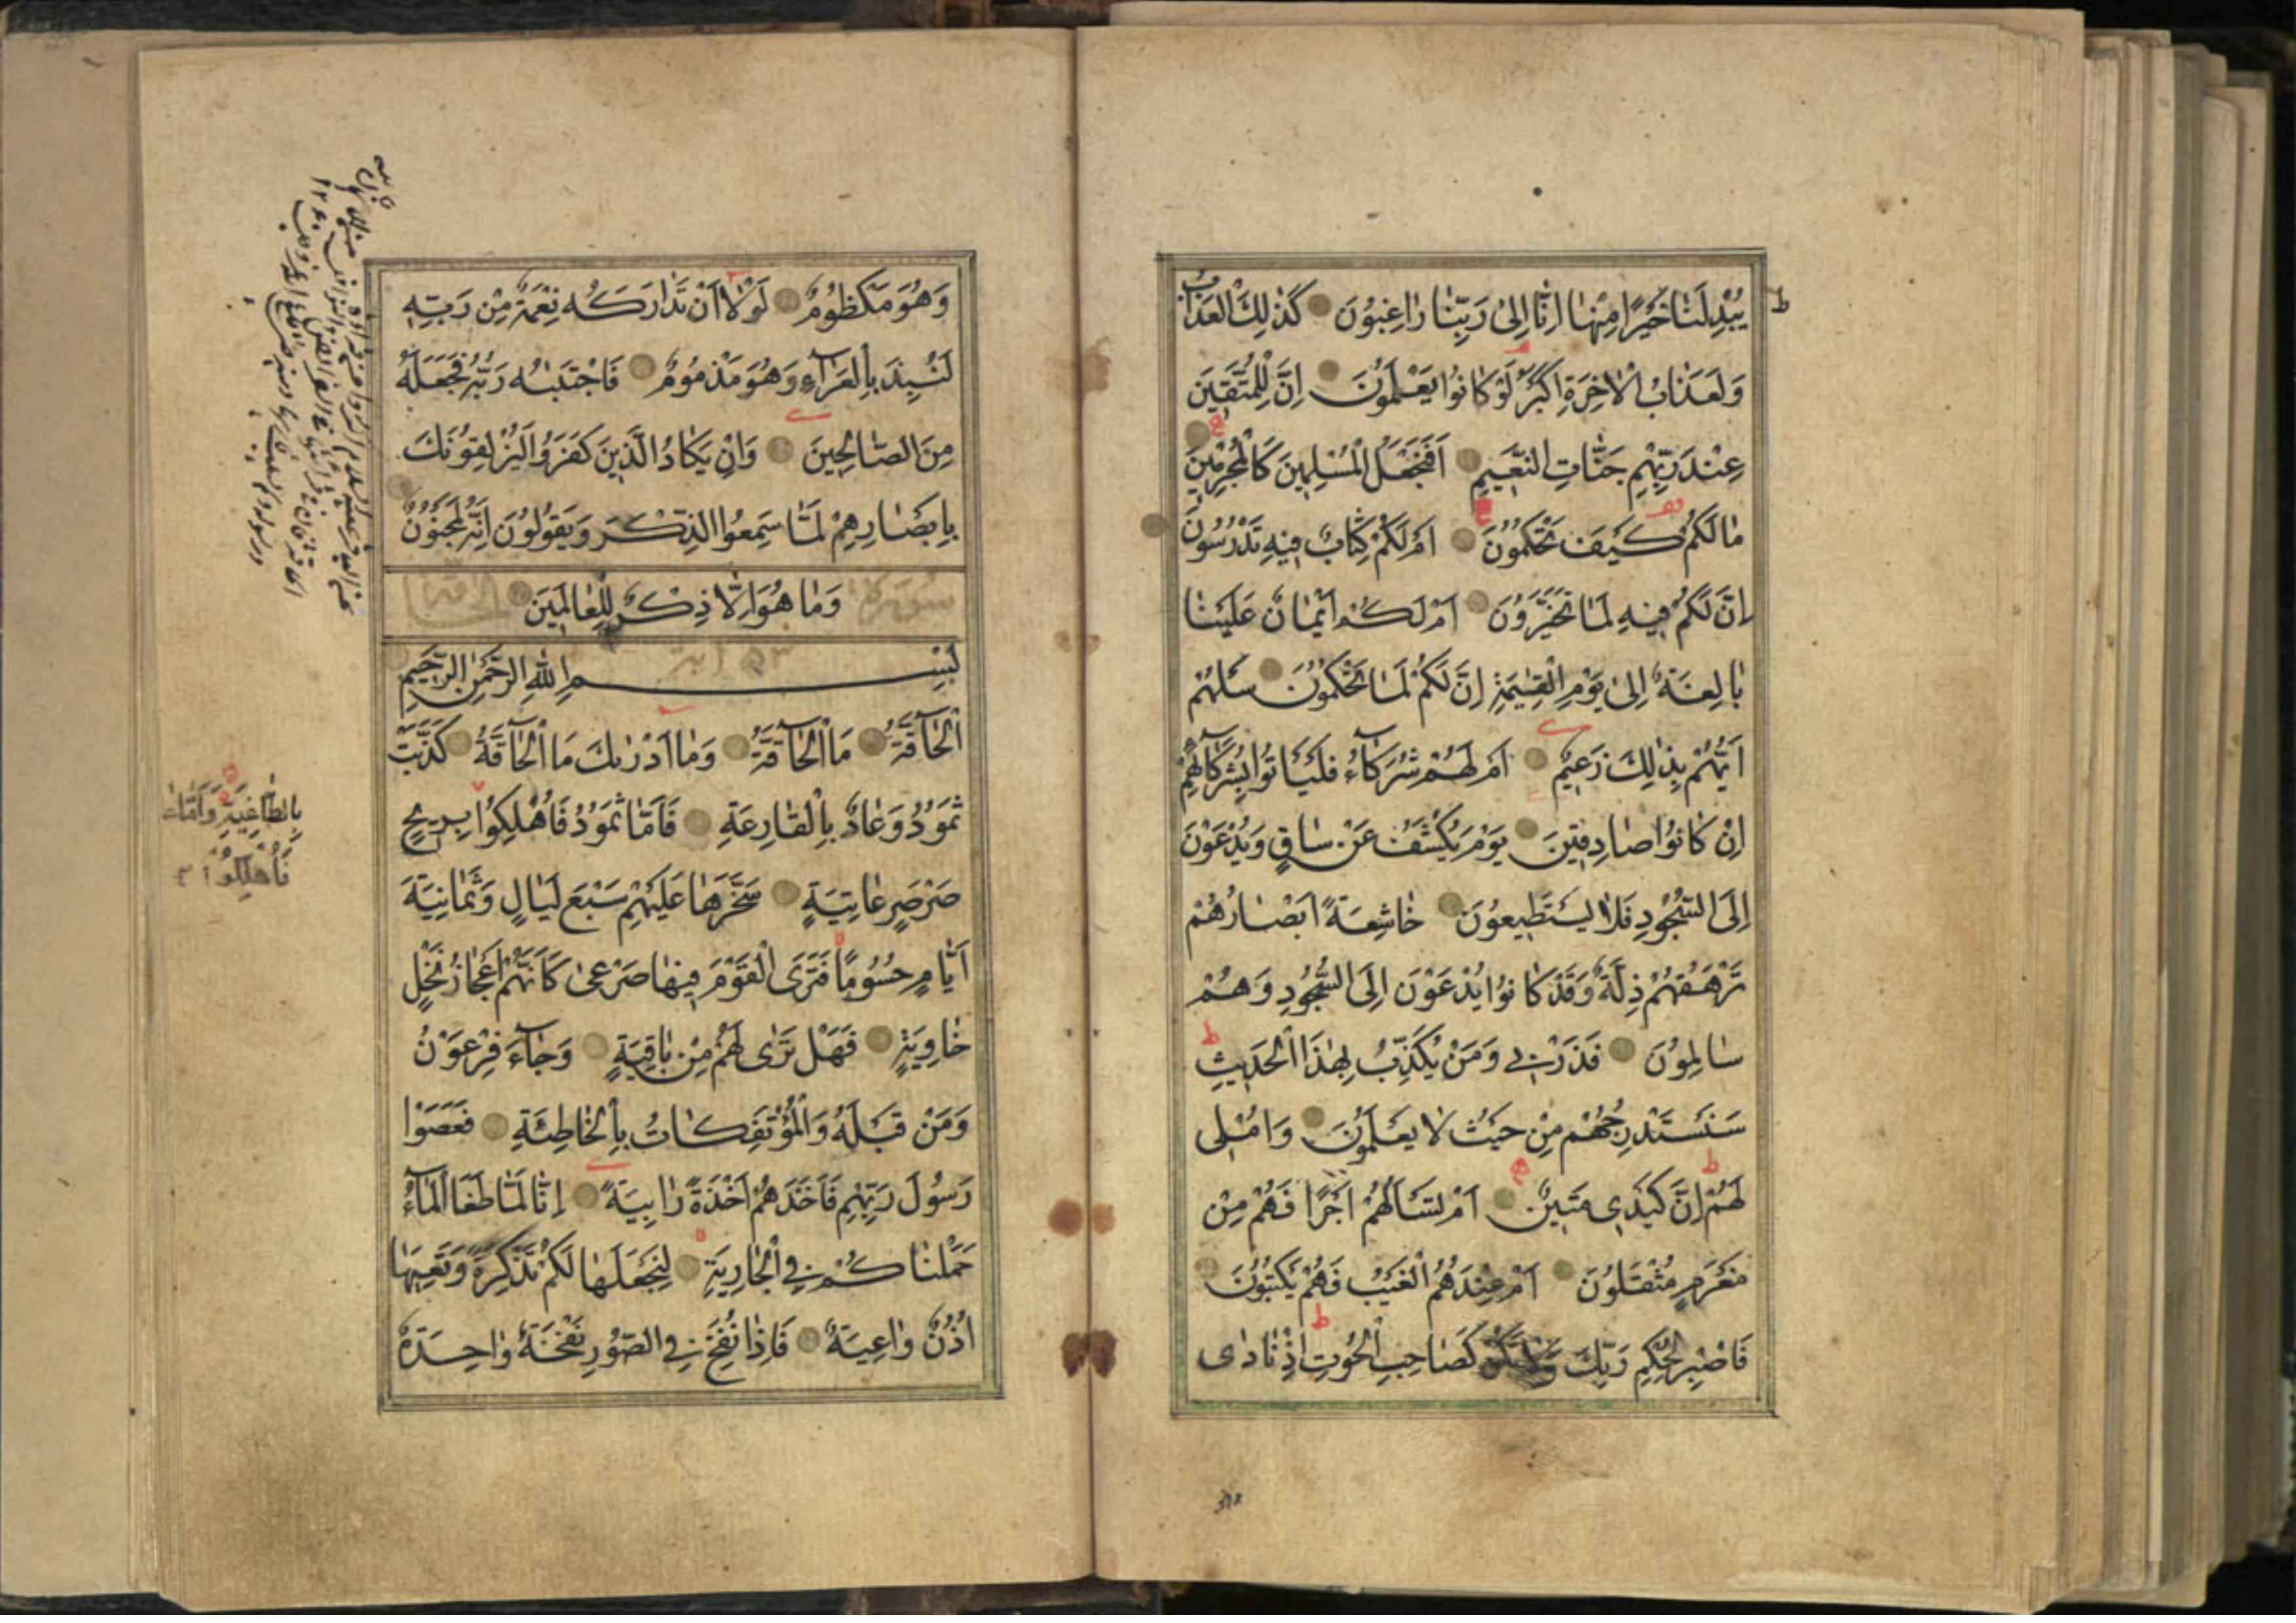 يُبْدِلَنَا خَيْرًا مِنْهَا اِنَّا اِلٰى رَبِّنَا رَاغِبُونَ كَذٰلِكَ الْعَذَابُ
ط
وَلَعَذَابُ الْاٰخِرَةِ اَكْبَرُ لَوْ كَانُوا يَعْلَمُونَ اِنَّ لِلْمُتَّقِينَ
عِنْدَ رَبِّهِمْ جَنَّاتِ النَّعِيمِ اَفَنَجْعَلُ الْمُسْلِمِينَ كَالْمُجْرِمِينَ
مَالَكُمْ كَيْفَ تَحْكُمُونَ اَمْ لَكُمْ كِتَابٌ فِيهِ تَدْرُسُونَ
اِنَّ لَكُمْ فِيهِ لَمَا تَخَيَّرُونَ اَمْ لَكُمْ اَيْمَانٌ عَلَيْنَا
بَالِغَةٌ اِلٰى يَوْمِ الْقِيٰمَةِ اِنَّ لَكُمْ لَمَا تَحْكُمُونَ سَلْهُمْ
اَيُّهُمْ بِذٰلِكَ زَعِيمٌ اَمْ لَهُمْ شُرَكَآءُ فَلْيَاْتُوا بِشُرَكَآئِهِمْ
اِنْ كَانُوا صَادِقِينَ يَوْمَ يُكْشَفُ عَنْ سَاقٍ وَيُدْعَوْنَ
اِلَى السُّجُودِ فَلَا يَسْتَطِيعُونَ خَاشِعَةً اَبْصَارُهُمْ
تَرْهَقُهُمْ ذِلَّةٌ وَقَدْ كَانُوا يُدْعَوْنَ اِلَى السُّجُودِ وَهُمْ
سَالِمُونَ فَذَرْنِى وَمَنْ يُكَذِّبُ بِهٰذَا الْحَدِيثِ
سَنَسْتَدْرِجُهُمْ مِنْ حَيْثُ لَا يَعْلَمُونَ وَاُمْلِى
لَهُمْ اِنَّ كَيْدِى مَتِينٌ اَمْ تَسْـَٔلُهُمْ اَجْرًا فَهُمْ مِنْ
مَغْرَمٍ مُثْقَلُونَ اَمْ عِنْدَهُمُ الْغَيْبُ فَهُمْ يَكْتُبُونَ
فَاصْبِرْ لِحُكْمِ رَبِّكَ وَلَا تَكُنْ كَصَاحِبِ الْحُوتِ اِذْ نَادٰى
وَهُوَ مَكْظُومٌ لَوْلَا اَنْ تَدَارَكَهُ نِعْمَةٌ مِنْ رَبِّهِ
لَنُبِذَ بِالْعَرَآءِ وَهُوَ مَذْمُومٌ فَاجْتَبٰىهُ رَبُّهُ فَجَعَلَهُ
مِنَ الصَّالِحِينَ وَاِنْ يَكَادُ الَّذِينَ كَفَرُوا لَيُزْلِقُونَكَ
بِاَبْصَارِهِمْ لَمَّا سَمِعُوا الذِّكْرَ وَيَقُولُونَ اِنَّهُ لَمَجْنُونٌ
سورة وَمَا هُوَ اِلَّا ذِكْرٌ لِلْعَالَمِينَ الحاقة
بِسْمِ اللهِ الرَّحْمٰنِ الرَّحِيمِ
اَلْحَآقَّةُ مَا الْحَآقَّةُ وَمَا اَدْرٰىكَ مَا الْحَآقَّةُ كَذَّبَتْ
ثَمُودُ وَعَادٌ بِالْقَارِعَةِ فَاَمَّا ثَمُودُ فَاُهْلِكُوا بِرِيحٍ
بِالطَّاغِيَةِ وَاَمَّا عَادٌ
فَاُهْلِكُوا
صَرْصَرٍ عَاتِيَةٍ سَخَّرَهَا عَلَيْهِمْ سَبْعَ لَيَالٍ وَثَمَانِيَةَ
اَيَّامٍ حُسُومًا فَتَرَى الْقَوْمَ فِيهَا صَرْعٰى كَاَنَّهُمْ اَعْجَازُ نَخْلٍ
خَاوِيَةٍ فَهَلْ تَرٰى لَهُمْ مِنْ بَاقِيَةٍ وَجَآءَ فِرْعَوْنُ
وَمَنْ قَبْلَهُ وَالْمُؤْتَفِكَاتُ بِالْخَاطِئَةِ فَعَصَوْا
رَسُولَ رَبِّهِمْ فَاَخَذَهُمْ اَخْذَةً رَابِيَةً اِنَّا لَمَّا طَغَا الْمَآءُ
حَمَلْنَاكُمْ فِى الْجَارِيَةِ لِنَجْعَلَهَا لَكُمْ تَذْكِرَةً وَتَعِيَهَا
اُذُنٌ وَاعِيَةٌ فَاِذَا نُفِخَ فِى الصُّورِ نَفْخَةٌ وَاحِدَةٌ